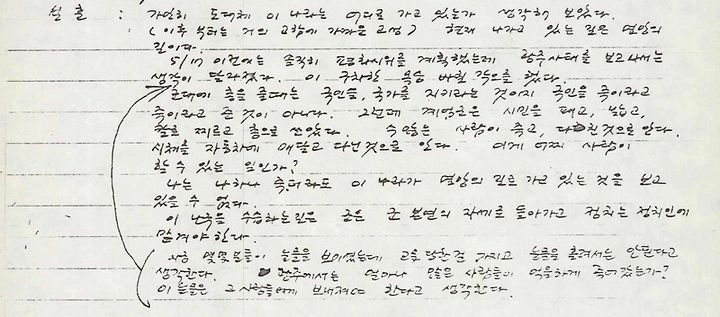 진술 : 가만히 도대체 이 나라는 어디로 가고 있는가 생각해 보았다.
(이후 부터는 거의 고함에 가까운 고성) 현재 나가고 있는 길은 멸망의
길이다.
5/17 이전에는 솔직히 평화시위를 계획했는데 광주사태를 보고나서는
생각이 달라졌다. 이 구차한 목숨 바칠 각오를 했다.
군대에 총을 줄때는 국민을, 국가를 지키라는 것이지 국민을 죽이라고
죽이라고 준 것이 아니다. 그런데 계엄군은 시민을 패고, 밟고,
칼로 찌르고 총으로 쏘았다. 수많은 사람이 죽고, 다친것으로 안다.
시체를 자동차에 매달고 다닌것으로 안다. 이게 어찌 사람이
할 수 있는 일인가?
나는 내 하나 죽더라도 이 나라가 멸망의 길로 가고 있는 것을 보고
있을 수 없다.
이 난국을 수습하는길은 군은 군 본연의 자세로 돌아가고 정치는 정치인에
맡겨야 한다.
사후 몇몇분들이 눈물을 보이셨는데 고문 당한걸 가지고 눈물을 흘려서는 안된다고
생각한다. 광주에서는 얼마나 많은 사람들이 억울하게 죽어갔는가?
이 눈물은 그 사람들에게 보내져야 한다고 생각한다.